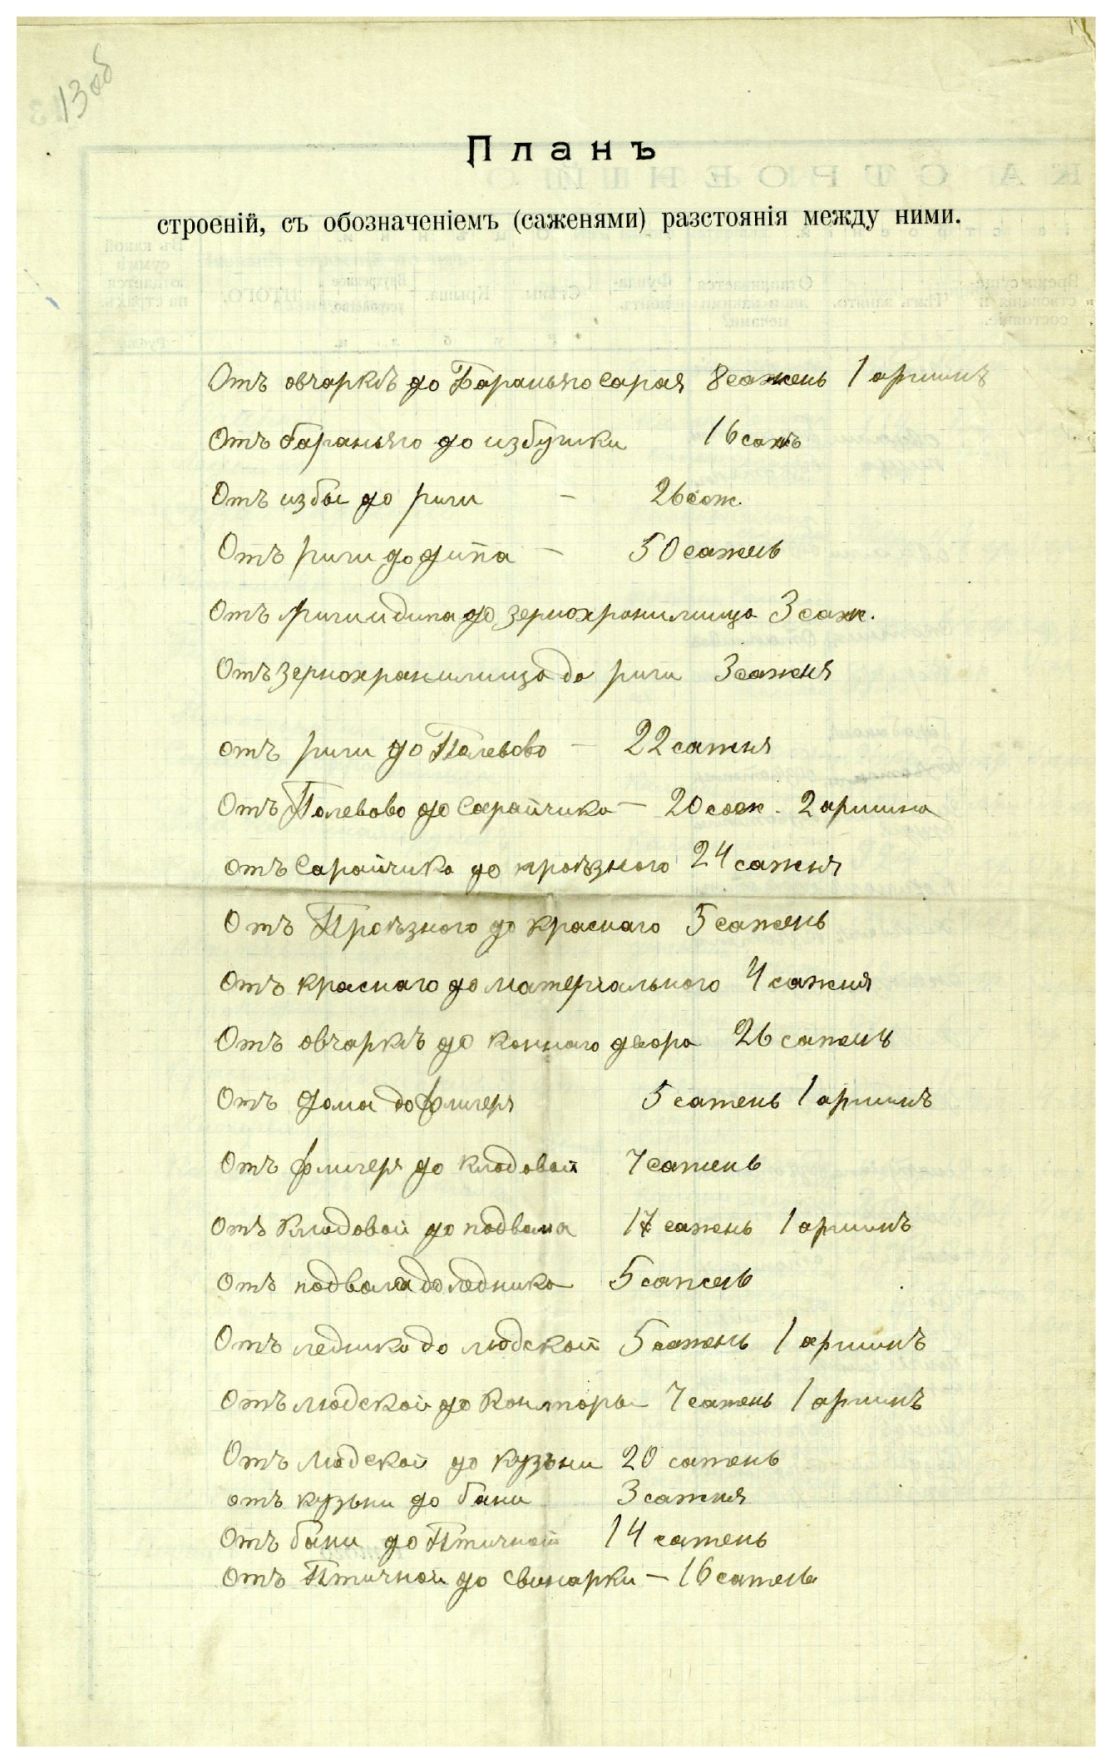 13 об
Планъ
строеній, съ обозначеніемъ (саженями) разстоянія между ними.
Отъ овчаркѣ до Бараньяго Сарая 8 сажень 1 аршинъ
Отъ бараньяго до избушки 16 сажъ
Отъ избы до риги — 26 саж.
Отъ риги до дипа — 50 сажень
Отъ риги и дипа до зернохранилища 3 саж.
Отъ Зернохранилища до риги 3 сажня
отъ риги до Полевово — 22 сажня
Отъ Полевово до Сарайчика — 20 саж. 2 аршина
отъ Сарайчика до проѣзного 24 сажня
Отъ Проѣзного до краснаго 5 сажень
Отъ краснаго до матеріального 4 сажня
Отъ овчаркѣ до коннаго двора 26 сажень
Отъ дома до флигеря 5 сажень 1 аршинъ
Отъ флигеря до кладовой 7 сажень
Отъ Кладовой до подвала 17 сажень 1 аршинъ
Отъ подвала до ледника 5 сажень
Отъ ледника до людской 5 сажень 1 аршинъ
Отъ людской до Конторы 7 сажень 1 аршинъ
Отъ людской до кузьни 20 сажень
отъ кузьни до бани 3 сажня
Отъ бани до Птичной 14 сажень
Отъ Птичной до свинарки — 16 сажень